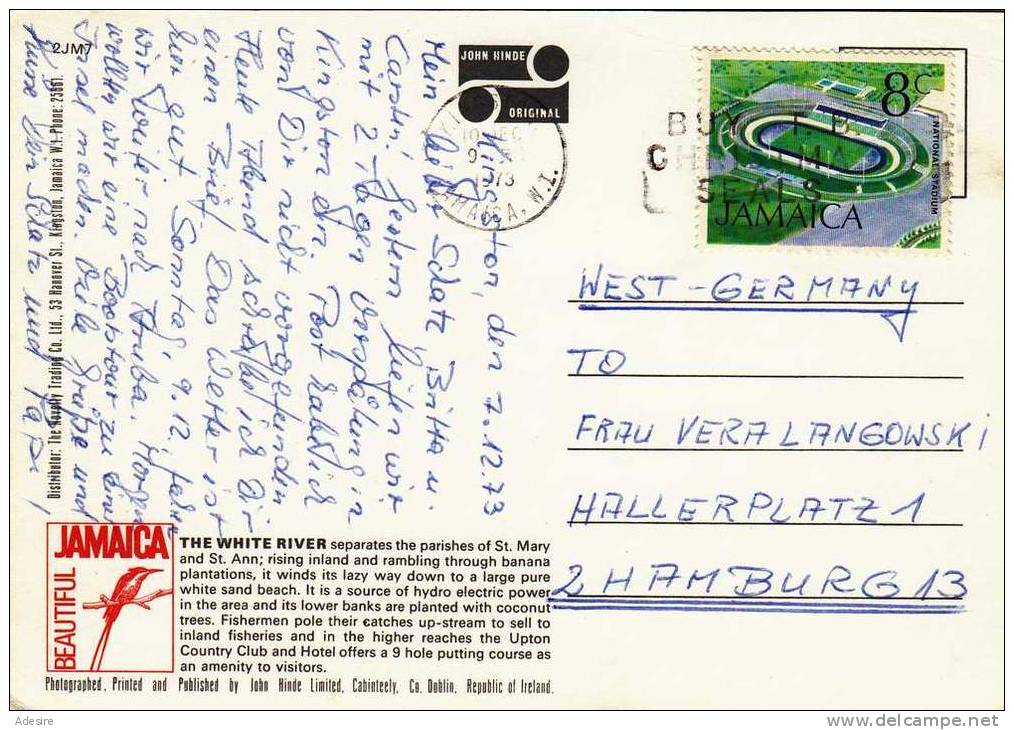 2JM7
Distributor: The Novelty Trading Co. Ltd., 53 Hanover St., Kingston, Jamaica W.I.-Phone: 25661.
JOHN HINDE
ORIGINAL
Kingston, den 7.12.73
Mein lieber Schatz, Britta u.
Carsten! Gestern liefen wir
mit 2 Tagen Verspätung in
Kingston ein. Post habe ich
von Dir nicht vorgefunden
Heute Abend schreibe ich Dir
einen Brief. Das Wetter ist
hier gut. Sonntag 9.12. fahren
wir weiter nach Aruba. Morgen
wollten wir eine Bootstour zu einer
Insel machen. Viele Grüße und
Küsse Dein Schatz und Papi!
10 DEC
1973
JAMAICA, W.I.
BUY T.B.
CHRISTMAS
SEALS
8c
NATIONAL STADIUM
JAMAICA
WEST-GERMANY
TO
FRAU VERA LANGOWSKI
HALLERPLATZ 1
2 HAMBURG 13
BEAUTIFUL
JAMAICA
THE WHITE RIVER separates the parishes of St. Mary
and St. Ann; rising inland and rambling through banana
plantations, it winds its lazy way down to a large pure
white sand beach. It is a source of hydro electric power
in the area and its lower banks are planted with coconut
trees. Fishermen pole their catches up-stream to sell to
inland fisheries and in the higher reaches the Upton
Country Club and Hotel offers a 9 hole putting course as
an amenity to visitors.
Photographed, Printed and Published by John Hinde Limited, Cabinteely, Co. Dublin, Republic of Ireland.
Adesire
www.delcampe.net